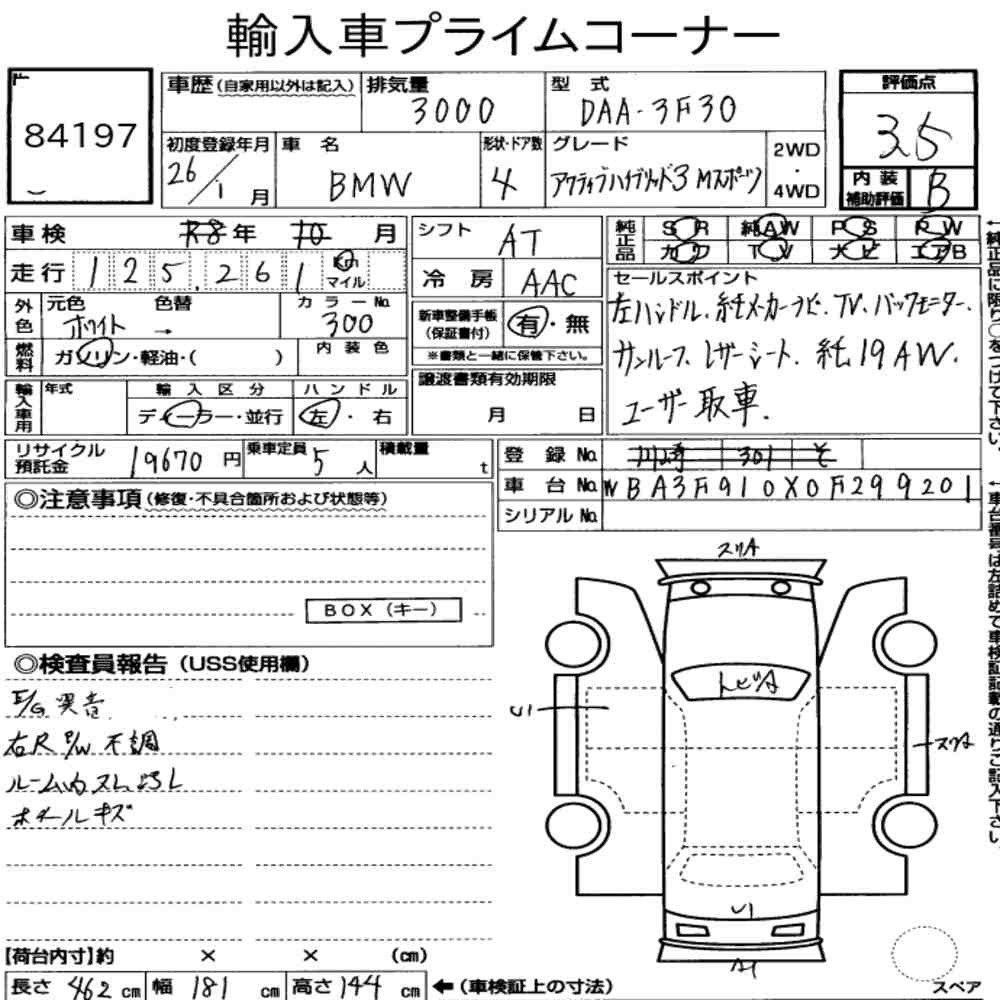 輸入車プライムコーナー
84197
車歴(自家用以外は記入)
排気量
3000
型式
DAA-3F30
評価点
3.5
初度登録年月
26/1月
車名
BMW
形状・ドア数
4
グレード
アクティブハイブリッド3 Mスポーツ
2WD
・
4WD
内装
補助評価
B
車検 R8年 10月
走行 125,261 Km
マイル
シフト AT
冷房 AAC
純正品
SR 純AW PS PW
カワ TV ナビ エアB
外色
元色 色替
ホワイト →
カラーNo.
300
燃料
ガソリン・軽油・( )
内装色
新車整備手帳
(保証書付)
有・無
※書類と一緒に保管下さい。
セールスポイント
左ハンドル.純メーカーナビ.TV.バックモニター.
サンルーフ.レザーシート.純19AW.
ユーザー取車.
輸入車用
年式
輸入区分
ディーラー・並行
ハンドル
左・右
譲渡書類有効期限
月 日
リサイクル
預託金
19670円
乗車定員
5人
積載量
t
登録No. 川崎 301 そ
車台No. WBA3F910X0F299201
シリアルNo.
◎注意事項(修復・不具合箇所および状態等)
BOX(キー)
◎検査員報告(USS使用欄)
E/G異音
右R P/W不調
ルーム内スレよごレ
ホイールキズ
スリA
トビA
U1
スリA
U1
A1
スペア
【荷台内寸】約 × × (cm)
長さ 462 cm 幅 181 cm 高さ 144 cm ←(車検証上の寸法)
←純正品に限り○をつけて下さい。
←車台番号は左詰めで車検証記載の通りご記入下さい。